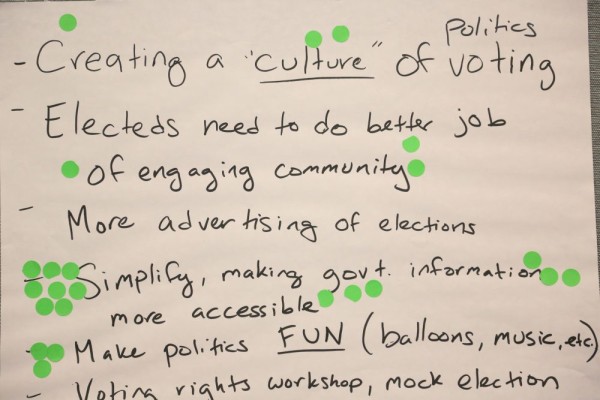 Politics
- Creating a "culture" of voting
- Electeds need to do better job
of engaging community
- More advertising of elections
- Simplify, making govt. information
more accessible
- Make politics FUN (balloons, music, etc.)
- Voting rights workshop, mock election